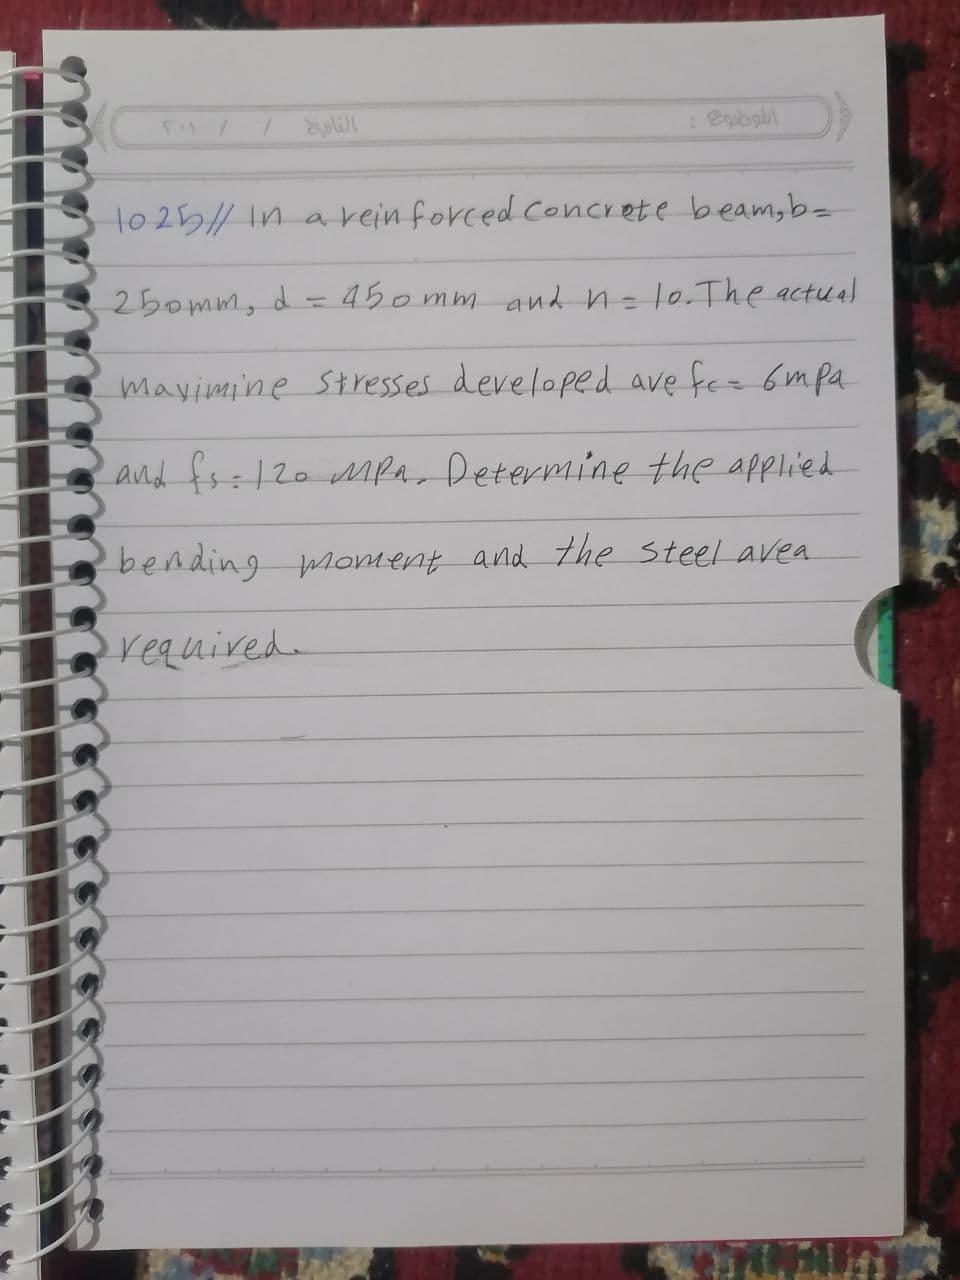 الموضوع :
التاريخ / / ٢٠١
1025// In a reinforced concrete beam, b=
250mm, d = 450mm and n = 10. The actual
mayimine stresses developed ave fc = 6mpa
and fs = 120 MPa. Determine the applied
bending moment and the steel avea
required.